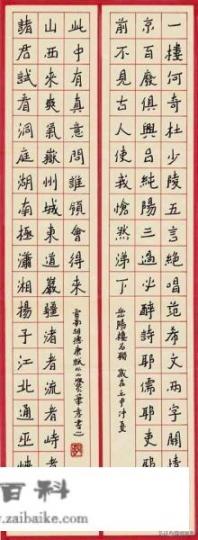 一樓何奇杜少陵五言絕唱范希文兩字關情
京百廢俱興呂純陽三過必醉詩耶儒耶吏耶
前不見古人使我愴然涕下
歲在壬申仲夏
諸君試看洞庭湖南極瀟湘揚子江北通巫峽
山西來爽氣嶽州城東道巖疆瀦者流者峙者
此中有真意問誰領會得來
百科
.zaibaike.com